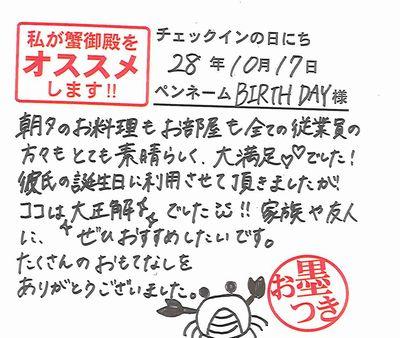 私が蟹御殿を
オススメ
します!!
チェックインの日にち
28年10月17日
ペンネーム BIRTH DAY 様
朝夕のお料理もお部屋も全ての従業員の
方々もとても素晴らしく、大満足♡♡でした!
彼氏の誕生日に利用させて頂きましたが
ココは大正解でした!! 家族や友人
に、ぜひおすすめしたいです。
たくさんのおもてなしを
ありがとうございました。
お墨
つき